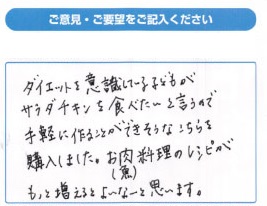 ご意見・ご要望をご記入ください
ダイエットを意識している子どもが
サラダチキンを食べたいと言うので
手軽に作ることができそうなこちらを
購入しました。お肉料理のレシピが
(魚)
もっと増えるとよいなーと思います。